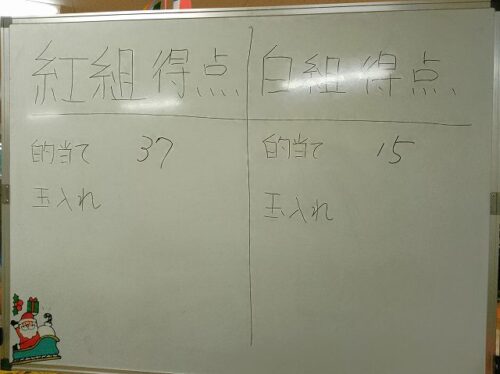 紅組得点
的当て 37
玉入れ
白組得点
的当て 15
玉入れ